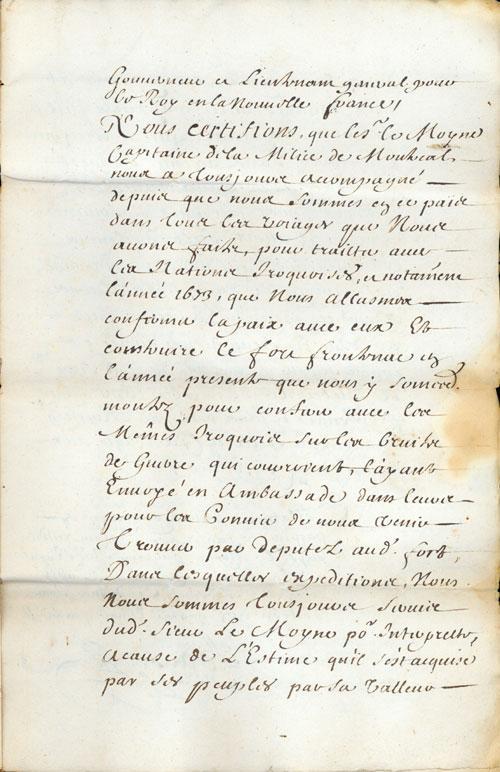 Gouverneur et Lieutenant general pour
le Roy en la Nouvelle france,
Nous certifions, que le sr. le Moyne
Capitaine de la Milice de Montreal,
nous a tousjours acompagné
depuis que nous sommes en ce païs
dans tous les voiages que Nous
avons faits, pour traitter avec
les Nations Iroquoises, et notament
l'année 1673, que Nous allasmes
confirmer la paix avec eux Et
construire le fort frontenac et
l'année presente que nous y sommes
montez pour conferer avec les
Mêmes Iroquois sur les bruits
de Guerre qui couroient, l'ayant
Envoyé en Ambassade dans leurs
pour les Convier de nous venir
trouver par deputez aud. fort,
Dans lesquelles expeditions, Nous
Nous sommes tousjours servis
dud. sieur Le Moyne pr. Interprette,
a cause de L'Estime qu'il s'est acquise
par ses peuples par sa valleur